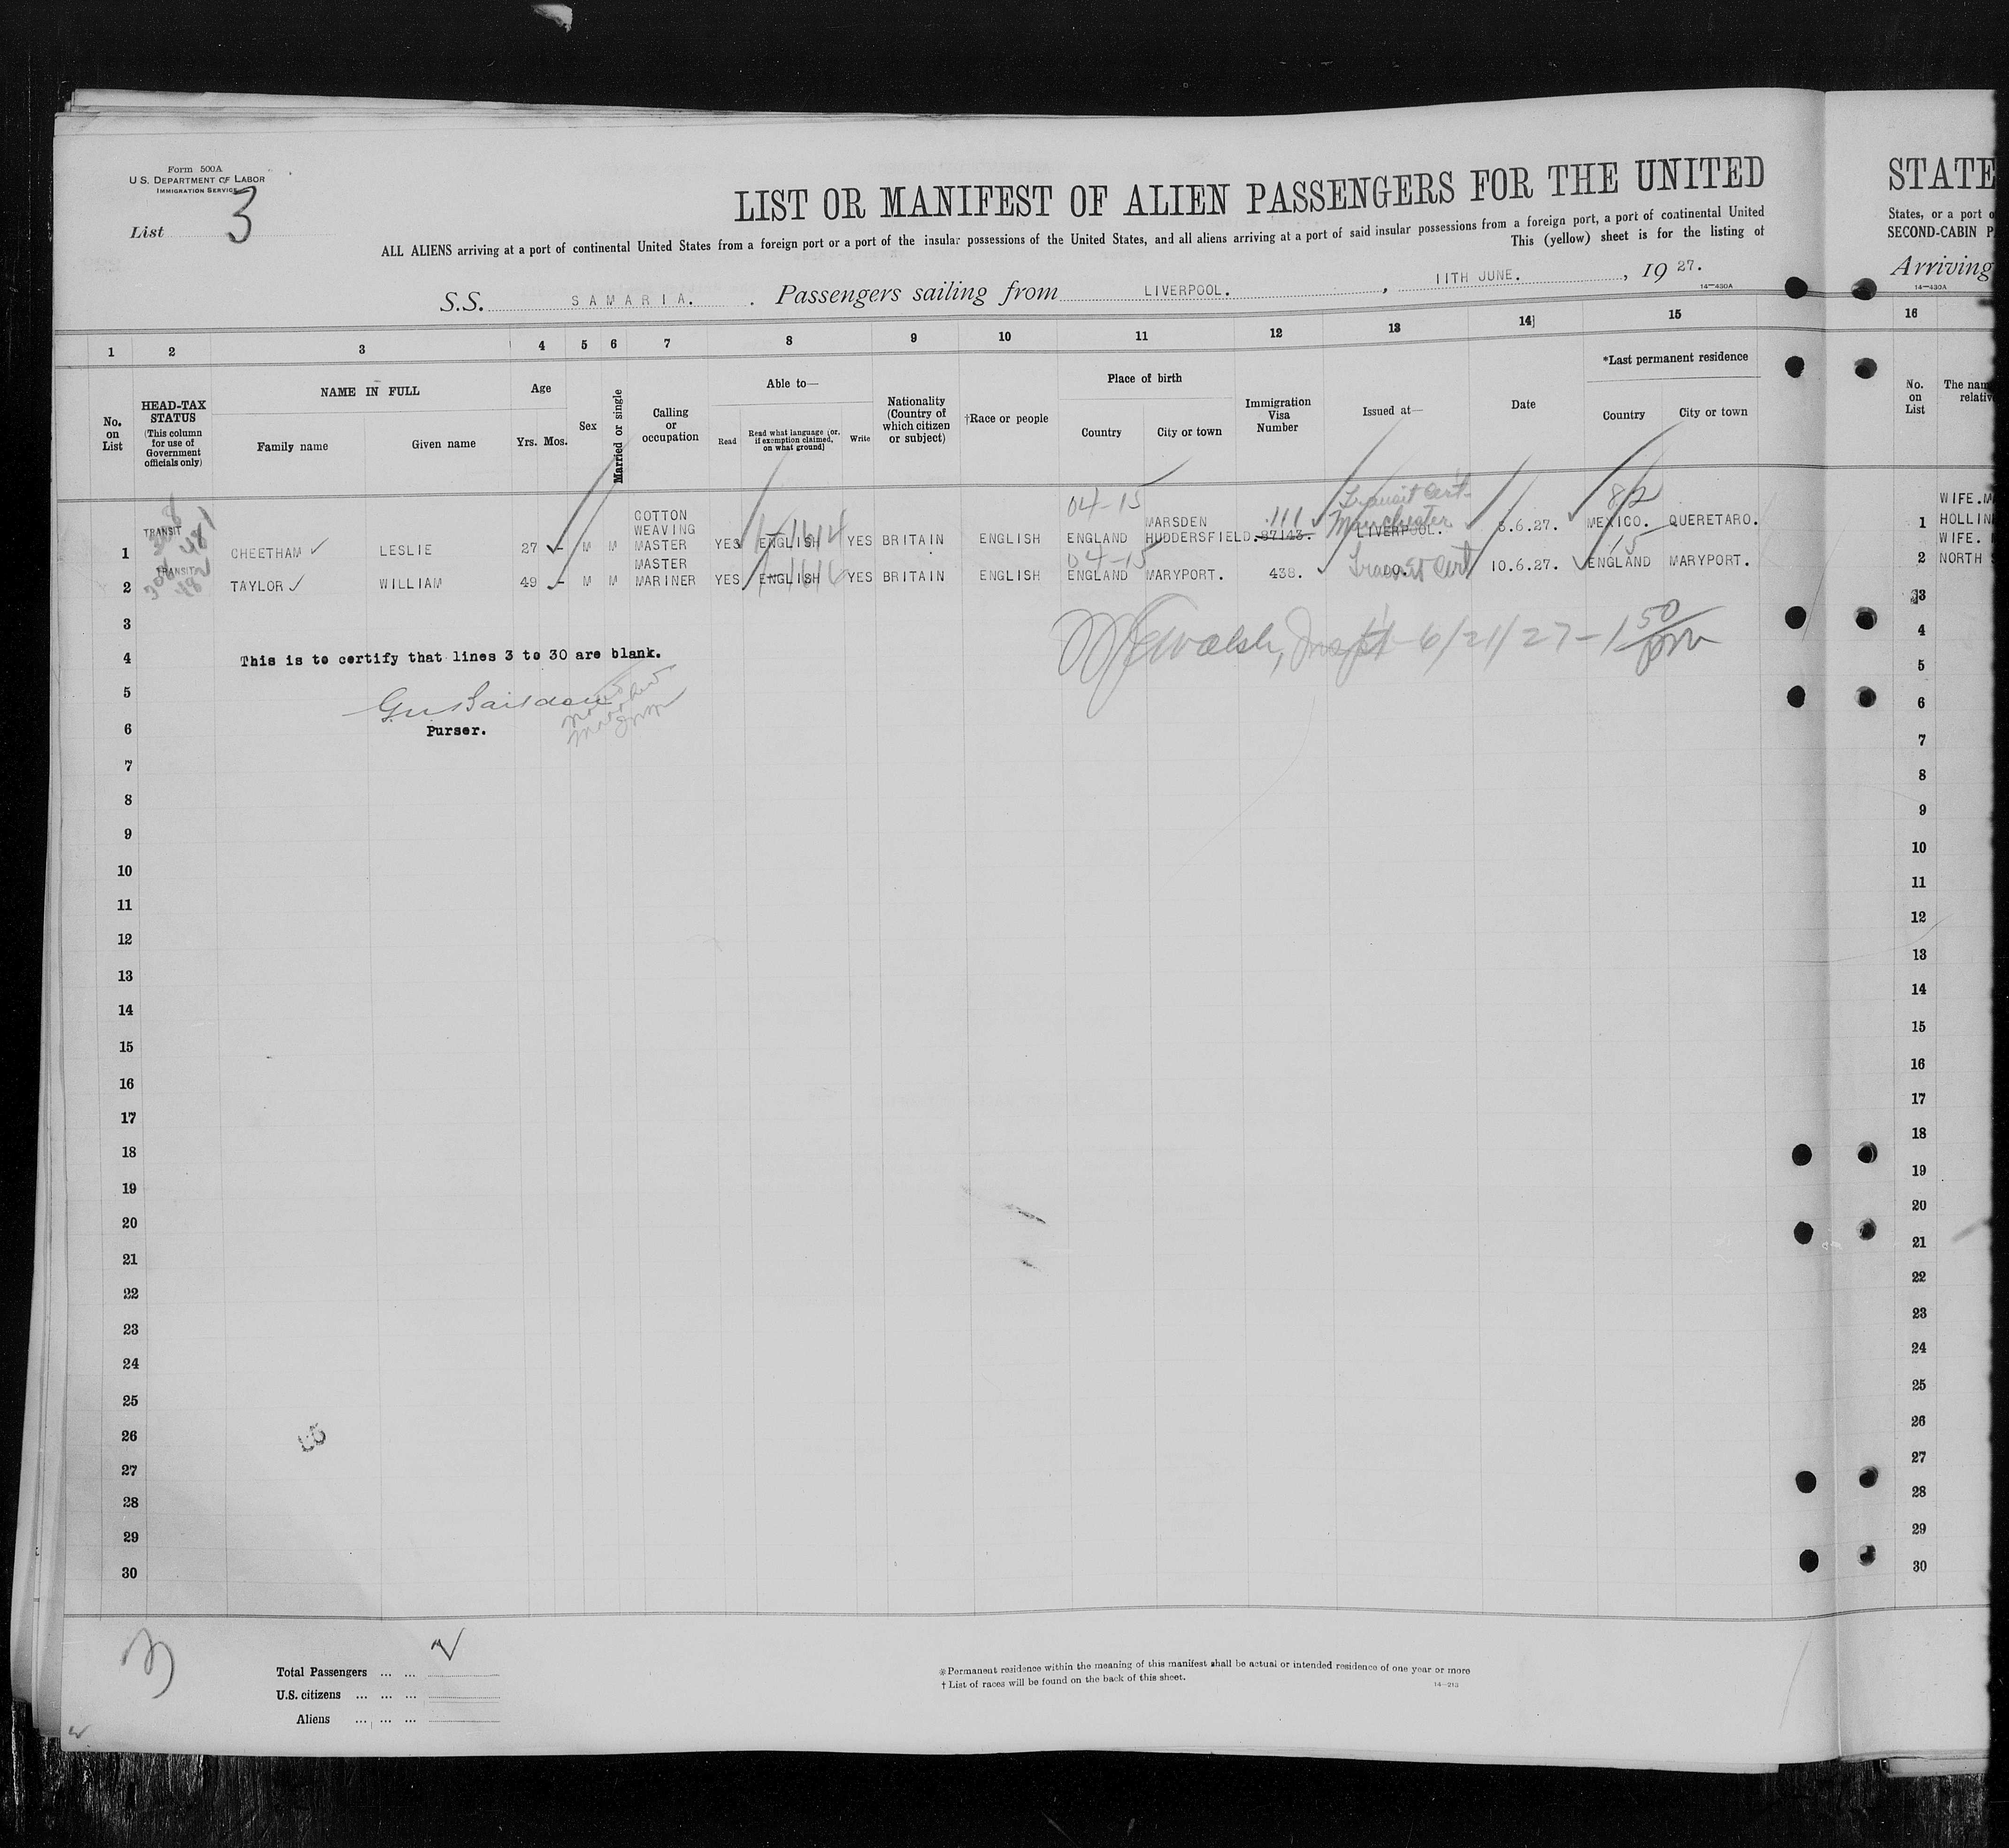 Form 500A
U.S. DEPARTMENT OF LABOR
IMMIGRATION SERVICE
List 3
LIST OR MANIFEST OF ALIEN PASSENGERS FOR THE UNITED
ALL ALIENS arriving at a port of continental United States from a foreign port or a port of the insular possessions of the United States, and all aliens arriving at a port of said insular possessions from a foreign port, a port of continental United
This (yellow) sheet is for the listing of
S.S. SAMARIA. Passengers sailing from LIVERPOOL. , 11TH JUNE. , 19 27.
14—430A
1 2 3 4 5 6 7 8 9 10 11 12 13 14 15
No. on List
HEAD-TAX STATUS
(This column for use of Government officials only)
NAME IN FULL
Family name Given name
Age
Yrs. Mos.
Sex
Married or single
Calling or occupation
Able to—
Read
Read what language (or, if exemption claimed, on what ground)
Write
Nationality (Country of which citizen or subject)
†Race or people
Place of birth
Country City or town
Immigration Visa Number
Issued at—
Date
*Last permanent residence
Country City or town
04-15 Transit Cert. 82
1 TRANSIT CHEETHAM LESLIE 27 - M M COTTON WEAVING MASTER YES ENGLISH YES BRITAIN ENGLISH ENGLAND MARSDEN HUDDERSFIELD. 87143. 111 LIVERPOOL. Manchester 3.6.27. MEXICO. QUERETARO.
04-15 15
2 TRANSIT TAYLOR WILLIAM 49 - M M MASTER MARINER YES ENGLISH YES BRITAIN ENGLISH ENGLAND MARYPORT. 438. DO. Transit Cert 10.6.27. ENGLAND MARYPORT.
3
4 This is to certify that lines 3 to 30 are blank.
Walsh, Inspt 6/21/27 - 1 50 pm
5
6 Purser.
7
8
9
10
11
12
13
14
15
16
17
18
19
20
21
22
23
24
25
26
27
28
29
30
3
Total Passengers ... ... 2
U.S. citizens ... ... ...
Aliens ... ... ...
*Permanent residence within the meaning of this manifest shall be actual or intended residence of one year or more
† List of races will be found on the back of this sheet.
14—213
STATE
States, or a port o
SECOND-CABIN P
Arriving
14—430A
16
No. on List
The nam
relativ
WIFE. M
1 HOLLIN
WIFE.
2 NORTH
3
4
5
6
7
8
9
10
11
12
13
14
15
16
17
18
19
20
21
22
23
24
25
26
27
28
29
30